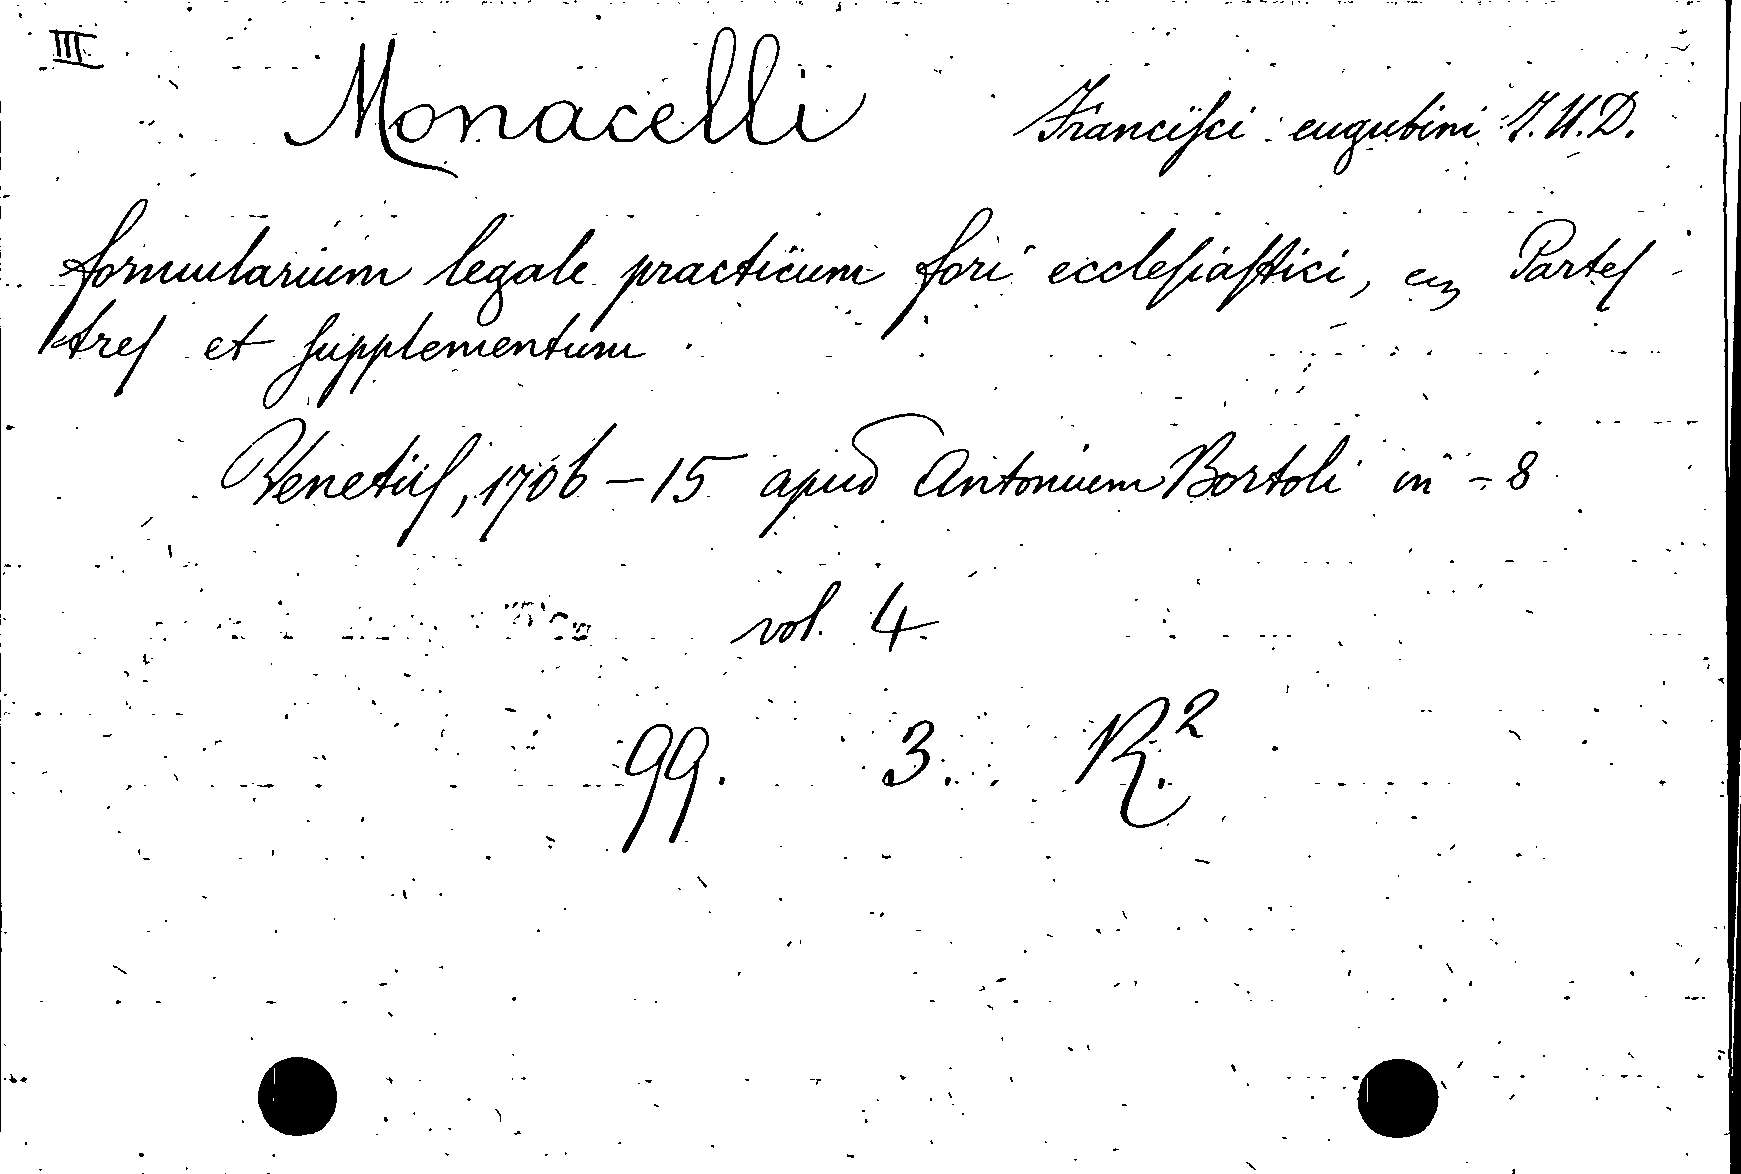 III
Monacelli Franciſci eugubini J.U.D.
formularium legale practicum fori eccleſiaſtici, in Parteſ
treſ et ſupplementum
Venetiiſ, 1706 – 15 apud Antonium Bortoli in - 8
vol. 4.
99. 3. R.2